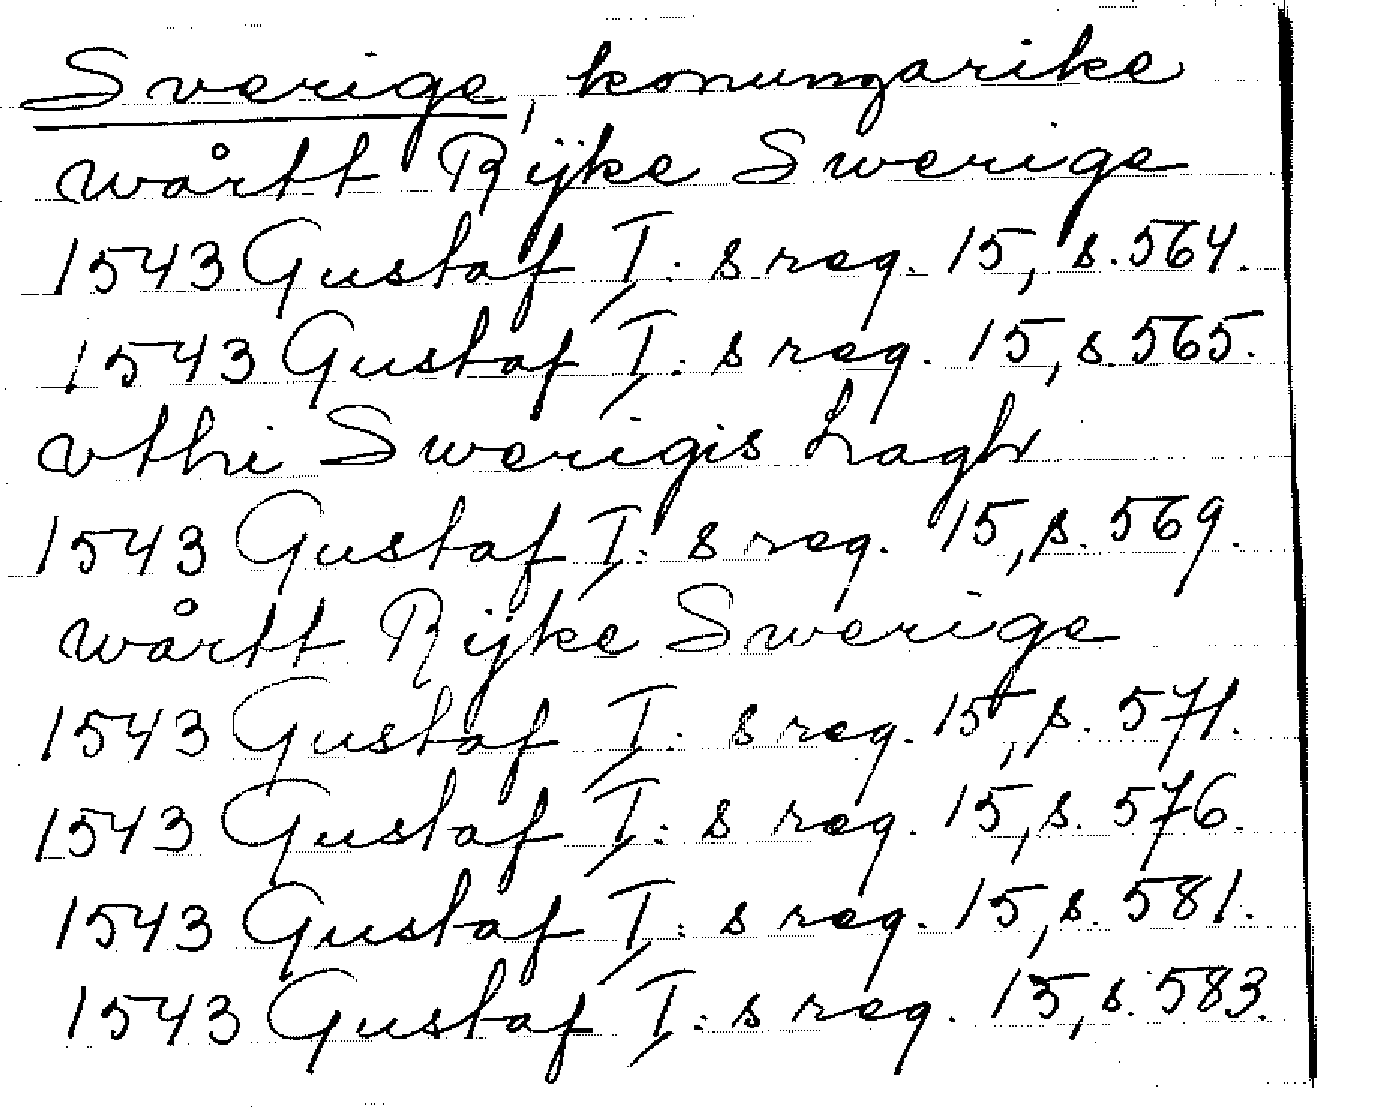 Sverige, konungarike
wårtt Rijke Swerige
1543 Gustaf I:s reg. 15, s. 564.
1543 Gustaf I:s reg. 15, s. 565.
vthi Swerigis Lagh
1543 Gustaf I:s reg. 15, s. 569.
wårtt Rijke Swerige
1543 Gustaf I:s reg. 15, s. 571.
1543 Gustaf I:s reg. 15, s. 576.
1543 Gustaf I:s reg. 15, s. 581.
1543 Gustaf I:s reg. 15, s. 583.